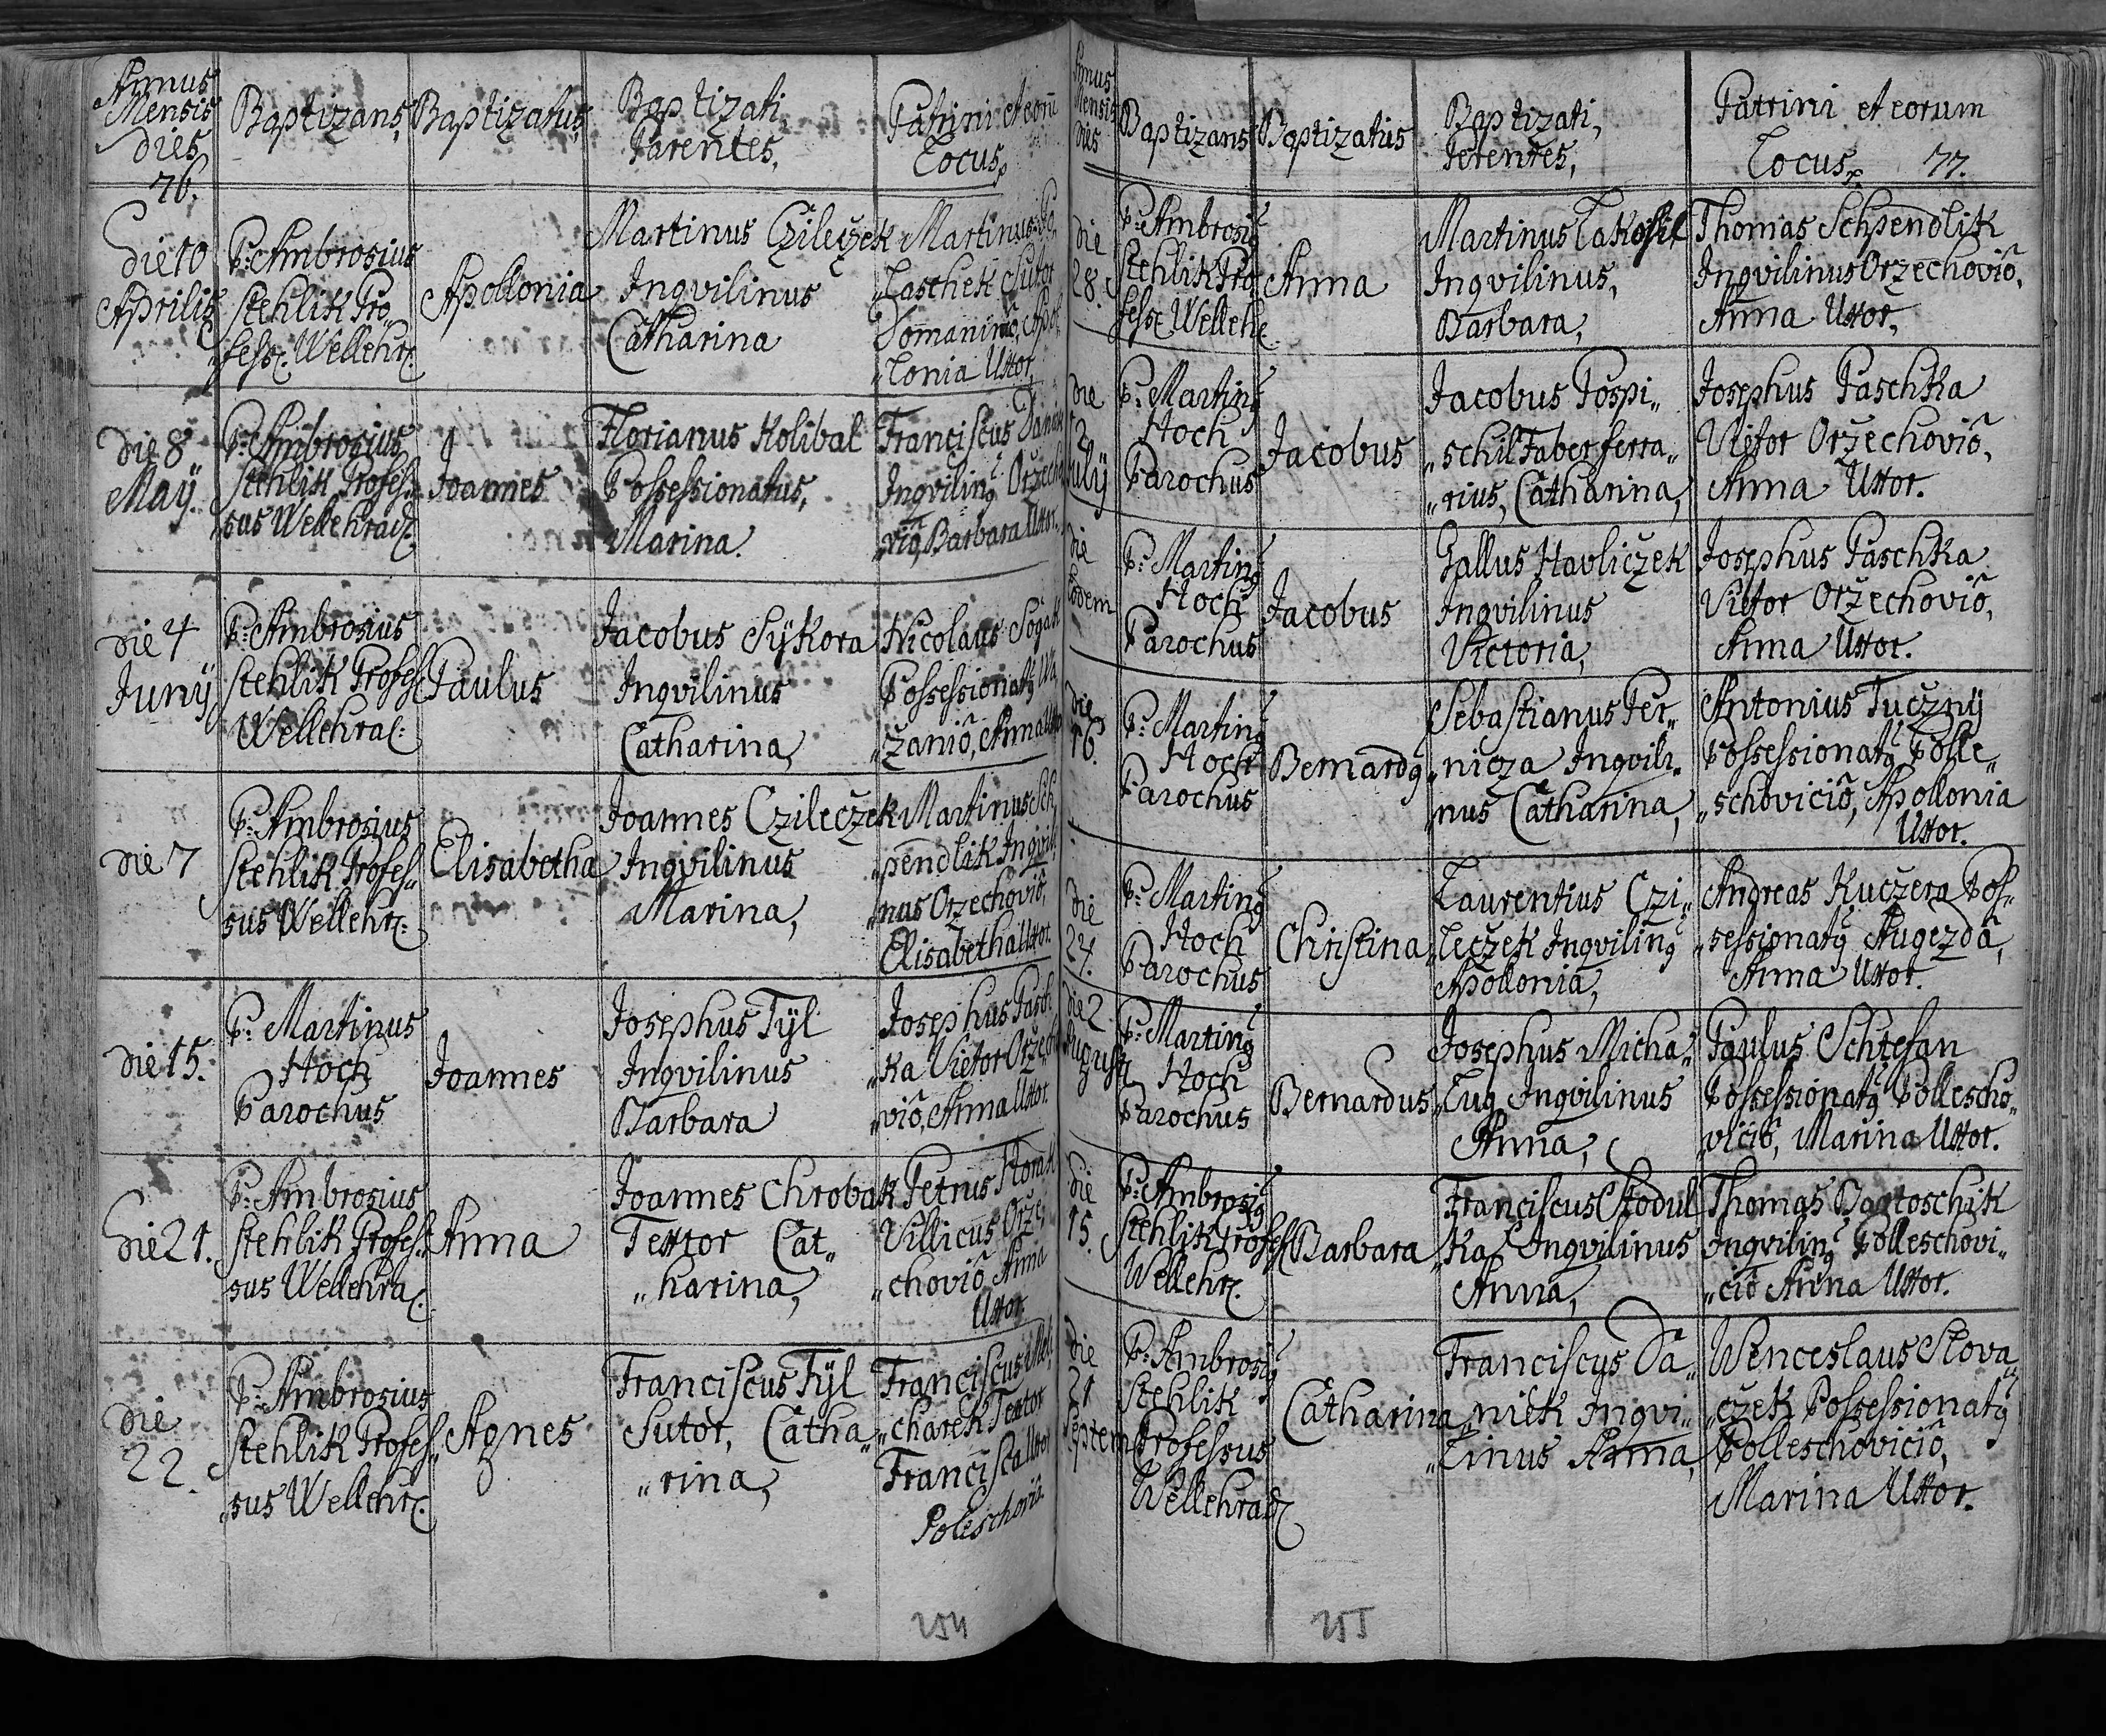 Annus
Mensis
dies
76.
Baptizans,
Baptizatus,
Baptizati,
Parentes,
Patrini et eorũ
Locus,
Die 10
Aprilis
P: Ambrosius
Stehlik Pro„
„fess. Wellehr.
Apollonia
Martinus Czileczek
Inqvilinus
Catharina
Martinus
„Laschek Sutor
Domanino, Apol
„lonia Uxor,
Die 8
Maÿ.
P: Ambrosius
Stehlik Profes„
„sus Wellehrad.
Joannes
Florianus Kolibal
Possessionatus,
Marina.
Franciscus
Inqvilinꝯ Orzecho
„vio, Barbara Uxor.
Die 4
Junÿ
P: Ambrosius
Stehlik Profess.
Wellehra:
Paulus
Jacobus Sÿkora
Inqvilinus
Catharina,
Nicolaus
Possessionatꝯ
„zanio, Anna
Die 7
P: Ambrosius
Stehlik Profes„
sus Wellehr:
Elisabetha
Joannes Czileczek
Inqvilinus
Marina,
Martinus Sch
„pendlik Inqvili
„nus Orzechovio,
Elisabetha Uxor.
Die 15.
P: Martinus
Hoch
Parochus
Joannes
Josephus Tÿl
Inqvilinus
Barbara
Josephus Pasch
„ka Vietor Orzecho
„vio, Anna Uxor.
Die 21.
P: Ambrosius
Stehlik Profes„
sus Wellehra.
Anna
Joannes Chrobak
Textor Cat„
„harina,
Petrus Horak
Villicus Orze„
„chovio Anna
Uxor.
Die
22.
P: Ambrosius
Stehlik Profes„
„sus Wellehr.
Agnes
Franciscus Tÿl
Sutor, Catha„
„rina,
Franciscus
„charek Textor
Francisca Uxor
Poleschovic.
254
Annus
Mensis
dies
Baptizans
Baptizatus
Baptizati,
Perentes,
Patrini et eorum
Locus, 77.
Die
28.
P: Ambrosiꝯ
Stehlik Pro„
fess. Welleh.
Anna
Martinus
Inqvilinus,
Barbara,
Thomas Schpendlik
Inqvilinus Orzechovio,
Anna Uxor,
Die
2
Julÿ
P: Martinꝯ
Hoch
Parochus
Jacobus
Jacobus Pospi„
„schil Faber ferra„
„rius, Catharina,
Josephus Paschka
Vietor Orzechovio,
Anna Uxor.
Die
Eodem
P: Martinꝯ
Hoch
Parochus
Jacobus
Gallus Havliczek
Inqvilinus
Victoria,
Josephus Paschka
Vietor Orzechovio,
Anna Uxor.
Die
16.
P: Martinꝯ
Hoch
Parochus
Bernardꝯ
Sebastianus Per„
„nicza Inqvili„
„nus Catharina,
Antonius Tuczny
Possessionatꝯ Polle„
„schovicio, Apollonia
Uxor.
Die
24.
P: Martinꝯ
Hoch
Parochus
Christina
Laurentius Czi„
„leczek Inqvilinꝯ
Apollonia,
Andreas Kuczera Pos„
„sessionatꝯ Augezda,
Anna Uxor.
Die 2
Augusti
P: Martinꝯ
Hoch
Parochus
Bernardus
Josephus Micha„
„luꝯ Inqvilinus
Anna,
Paulus Schtefan
Possessionatꝯ Pollescho„
„vicio, Marina Uxor.
Die
15.
P: Ambrosiꝯ
Stehlik Profess.
Wellehr.
Barbara
Franciscus Stodul
„ka Inqvilinus
Anna,
Thomas Bartoschik
Inqvilinꝯ Polleschovi„
„cio Anna Uxor.
Die
21
Septem
P: Ambrosiꝯ
Stehlik
Professus
Wellehrad.
Catharina
Franciscus Da„
„niek Inqvi„
„linus Anna,
Wenceslaus Slova„
„czek Possessionatꝯ
Polleschovicio,
Marina Uxor.
255